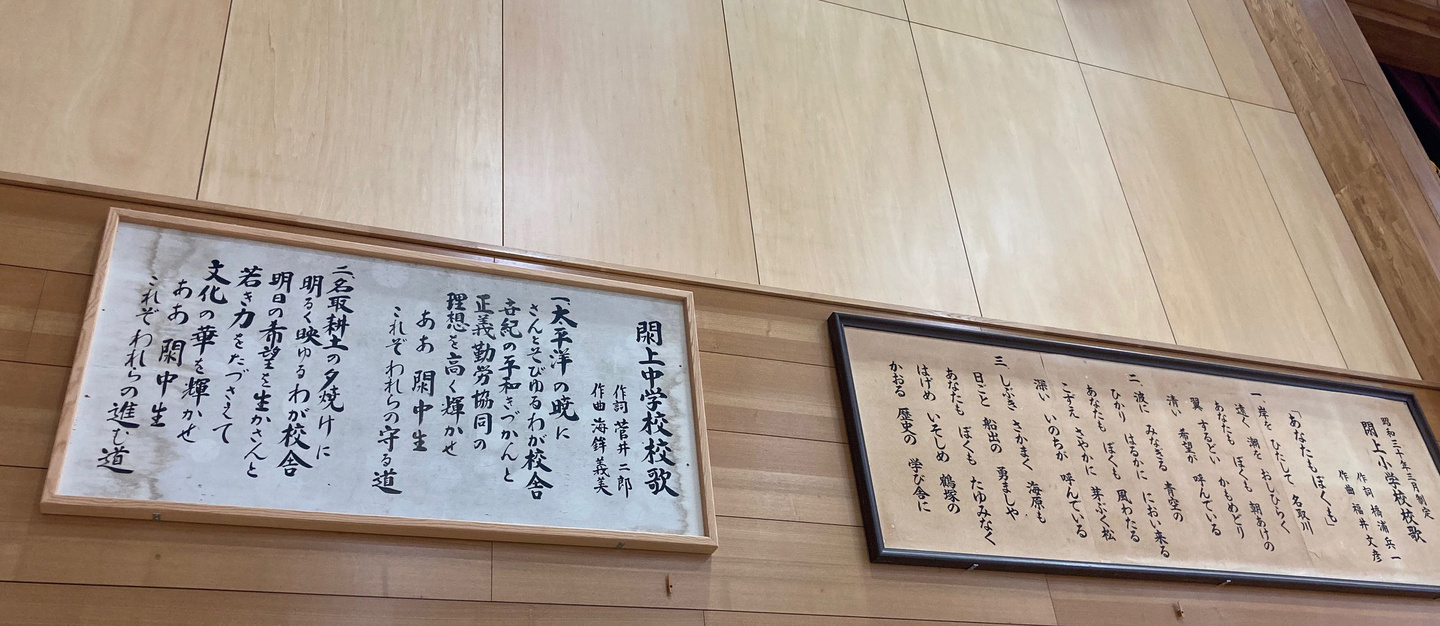 昭和三十年三月制定
閖上小学校校歌
作詞 橋浦兵一
作曲 福井文彦
「あなたもぼくも」
一、岸を ひたして 名取川
遠く 潮を おしひらく
あなたも ぼくも 朝あけの
翼 するどい かもめどり
清い 希望が 呼んでいる
二、波に みなぎる 青空の
ひかり はるかに におい来る
あなたも ぼくも 風わたる
こずえ さやかに 芽ぶく松
深い いのちが 呼んでいる
三、しぶき さかまく 海原も
日ごと 船出の 勇ましや
あなたも ぼくも たゆみなく
はげめ いそしめ 鶴塚の
かおる 歴史の 学び舎に
閖上中学校校歌
作詞 菅井二郎
作曲 海鋒義美
一、太平洋の暁に
さんとそびゆるわが校舎
世紀の平和きづかんと
正義勤労協同の
理想を高く輝かせ
ああ 閖中生
これぞわれらの守る道
二、名取耕土の夕焼けに
明るく映ゆるわが校舎
明日の希望を生かさんと
若き力をたづさえて
文化の華を輝かせ
ああ 閖中生
これぞわれらの進む道